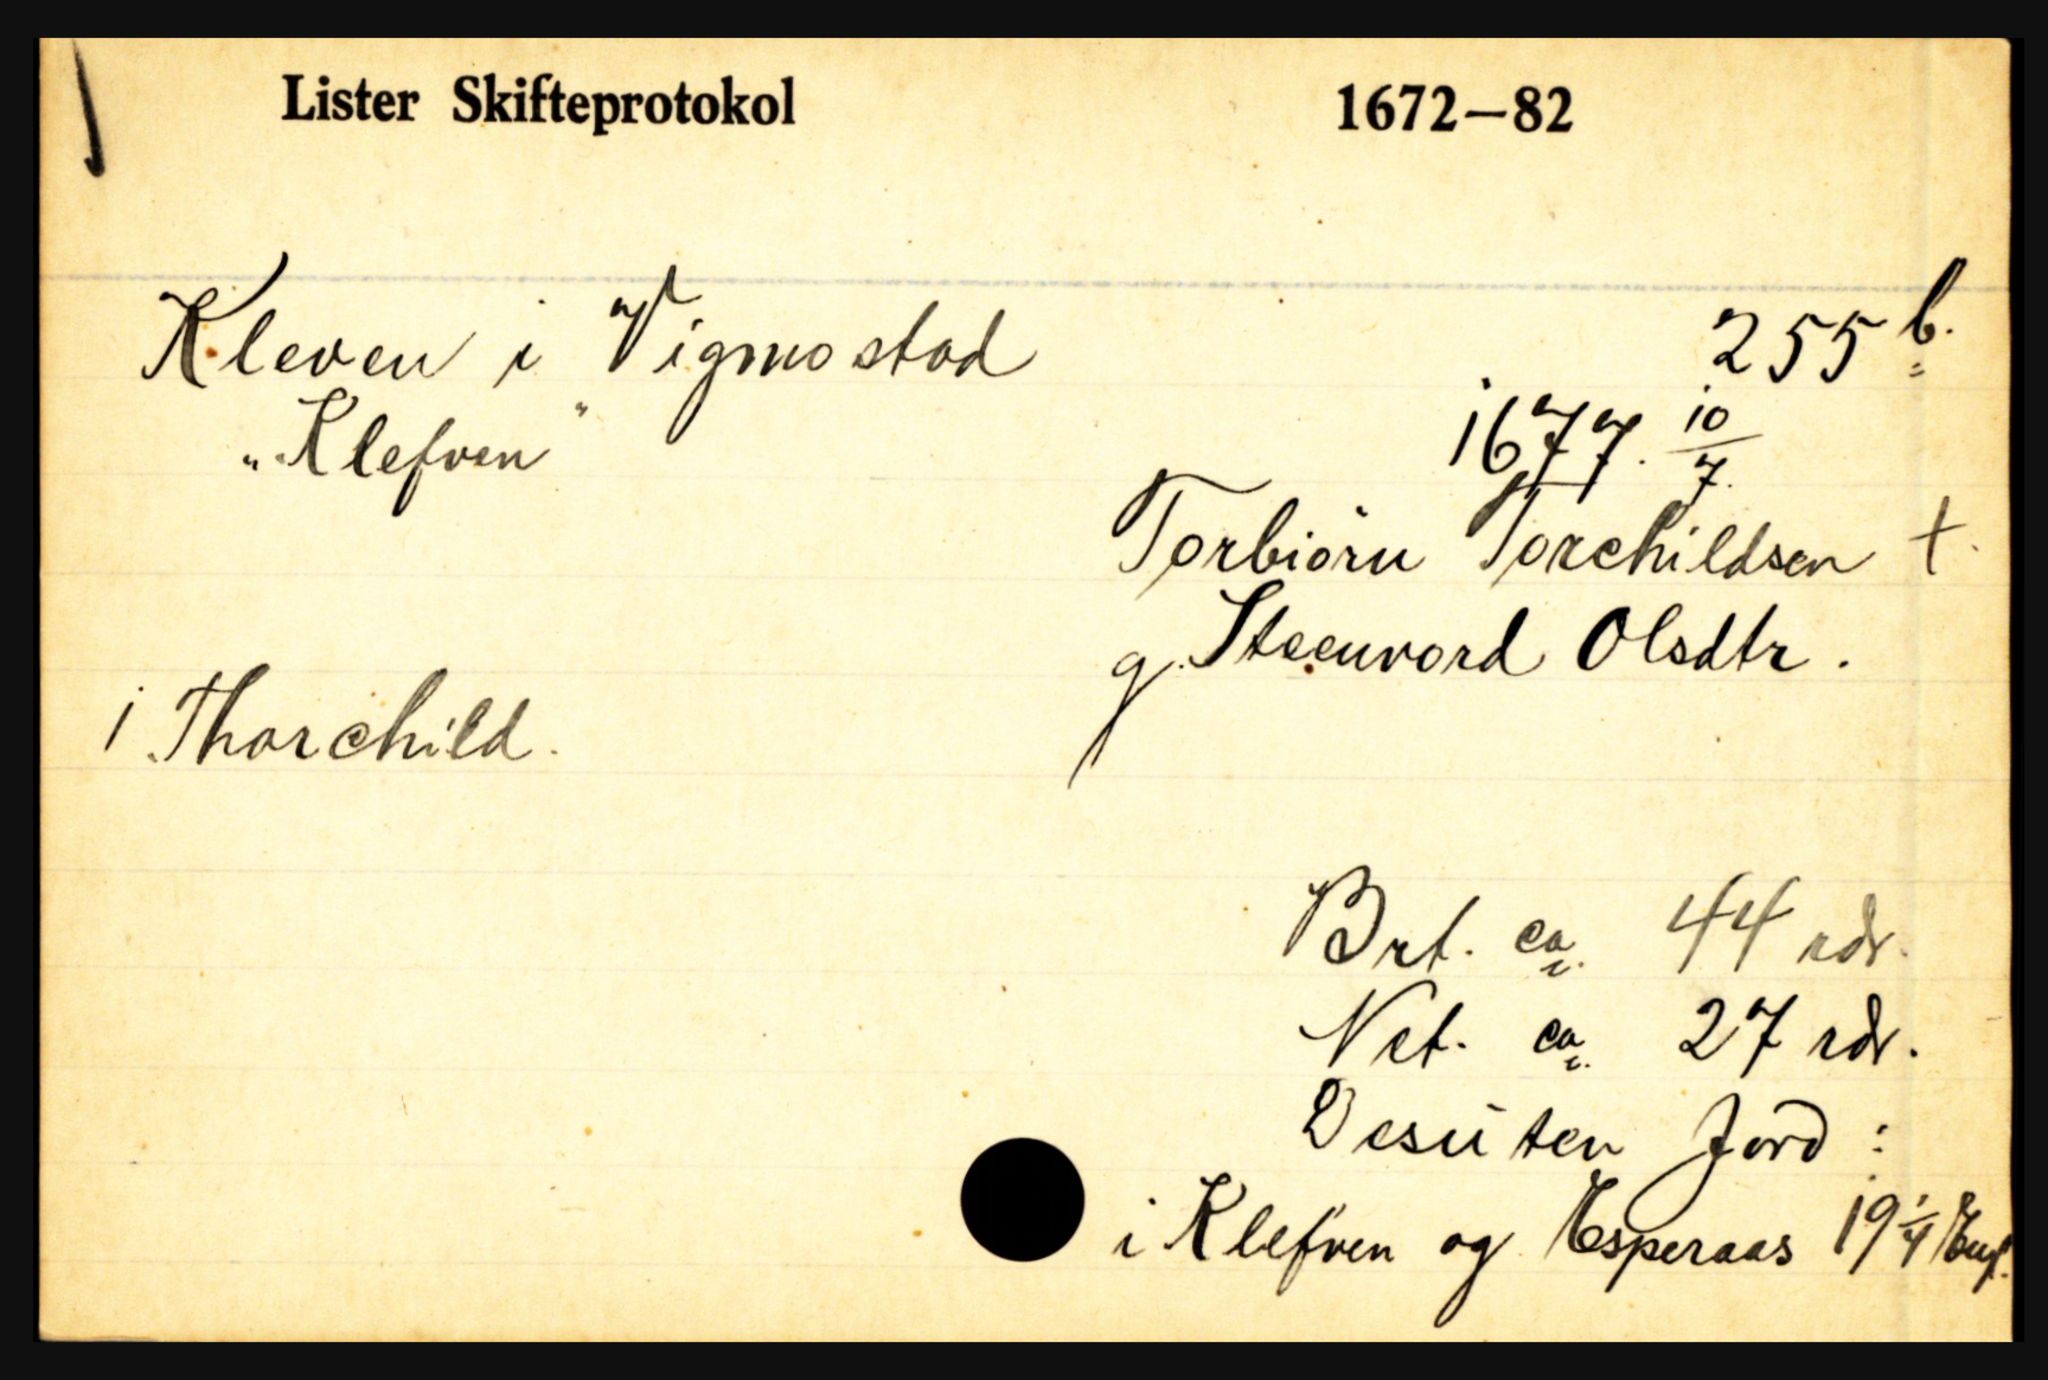 Lister Skifteprotokol 1672–82
Kleven i Vigmostad 255 b.
"Klefven" 1677. 10/7.
Torbiörn Torchildsen †.
g. Steenvord Olsdtr.
1 Thorchild.
Brt. ca. 44 rdr.
Net. ca. 27 rdr.
Desuten Jord :
i Klefven og Esperaas 19 1/4 Eng.